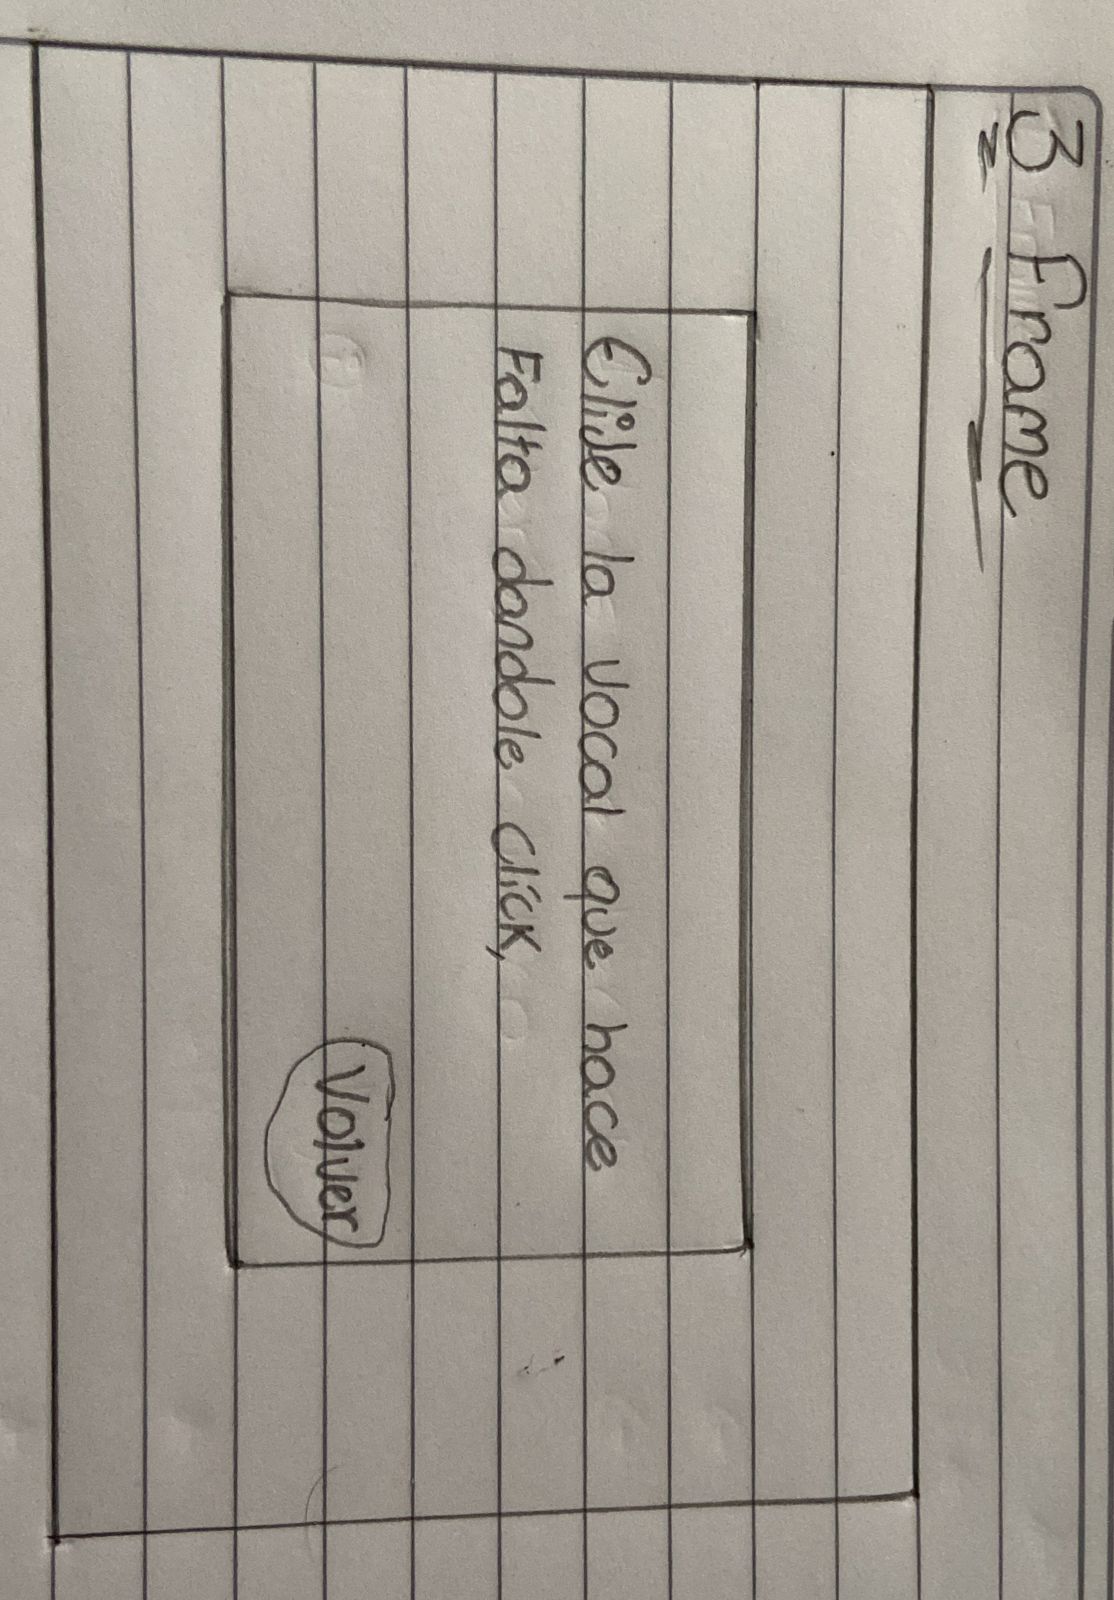 3 Frame
Elije la vocal que hace
Falta dandole click,
Volver